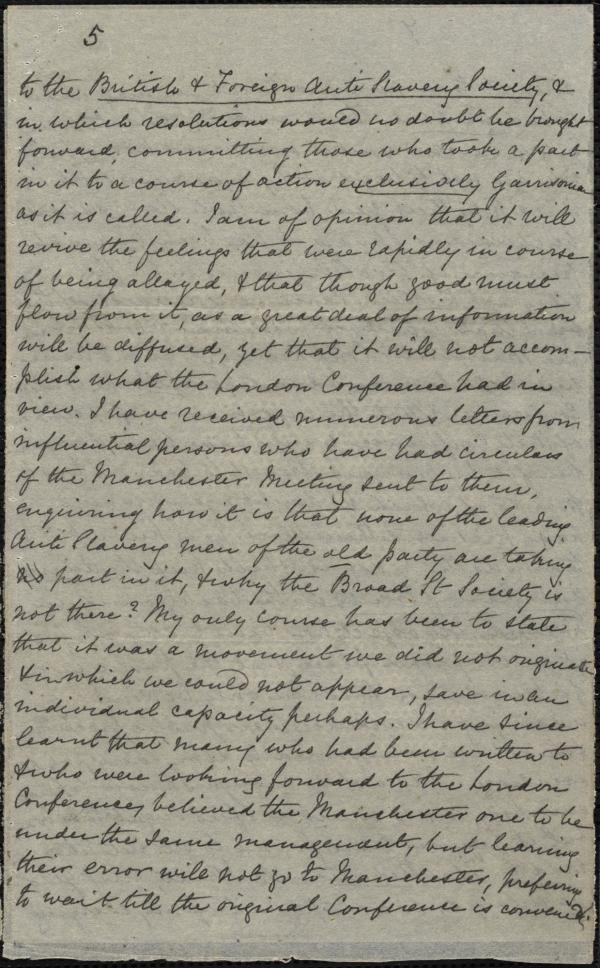 5
to the British & Foreign Anti Slavery Society, &
in which resolutions would no doubt be brought
forward, committing those who took a part
in it to a course of action exclusively Garrisonian
as it is called. I am of opinion that it will
revive the feelings that were rapidly in course
of being allayed, & that though good must
flow from it, as a great deal of information
will be diffused, yet that it will not accom-
plish what the London Conference had in
view. I have received numerous letters from
influential persons who have had circulars
of the Manchester Meeting sent to them,
enquiring how it is that none of the leading
Anti Slavery men of the old party are taking
part in it, & why the Broad St Society is
not there? My only course has been to state
that it was a movement we did not originate
& in which we could not appear, save in an
individual capacity perhaps. I have since
learnt that many who had been written to
& who were looking forward to the London
Conference, believed the Manchester one to be
under the same management, but learning
their error will not go to Manchester, preferring
to wait till the original Conference is convened.